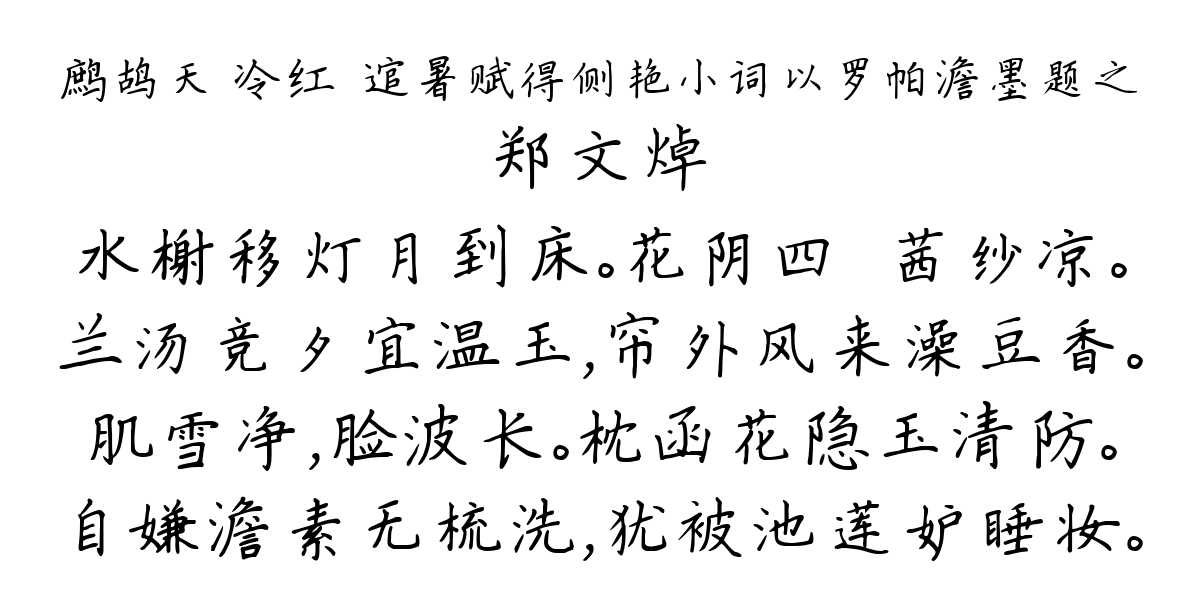 鹧鸪天 冷红 逭暑赋得侧艳小词以罗帕澹墨题之
郑文焯
水榭移灯月到床。花阴四 茜纱凉。
兰汤竞夕宜温玉,帘外风来澡豆香。
肌雪净,脸波长。枕函花隐玉清防。
自嫌澹素无梳洗,犹被池莲妒睡妆。